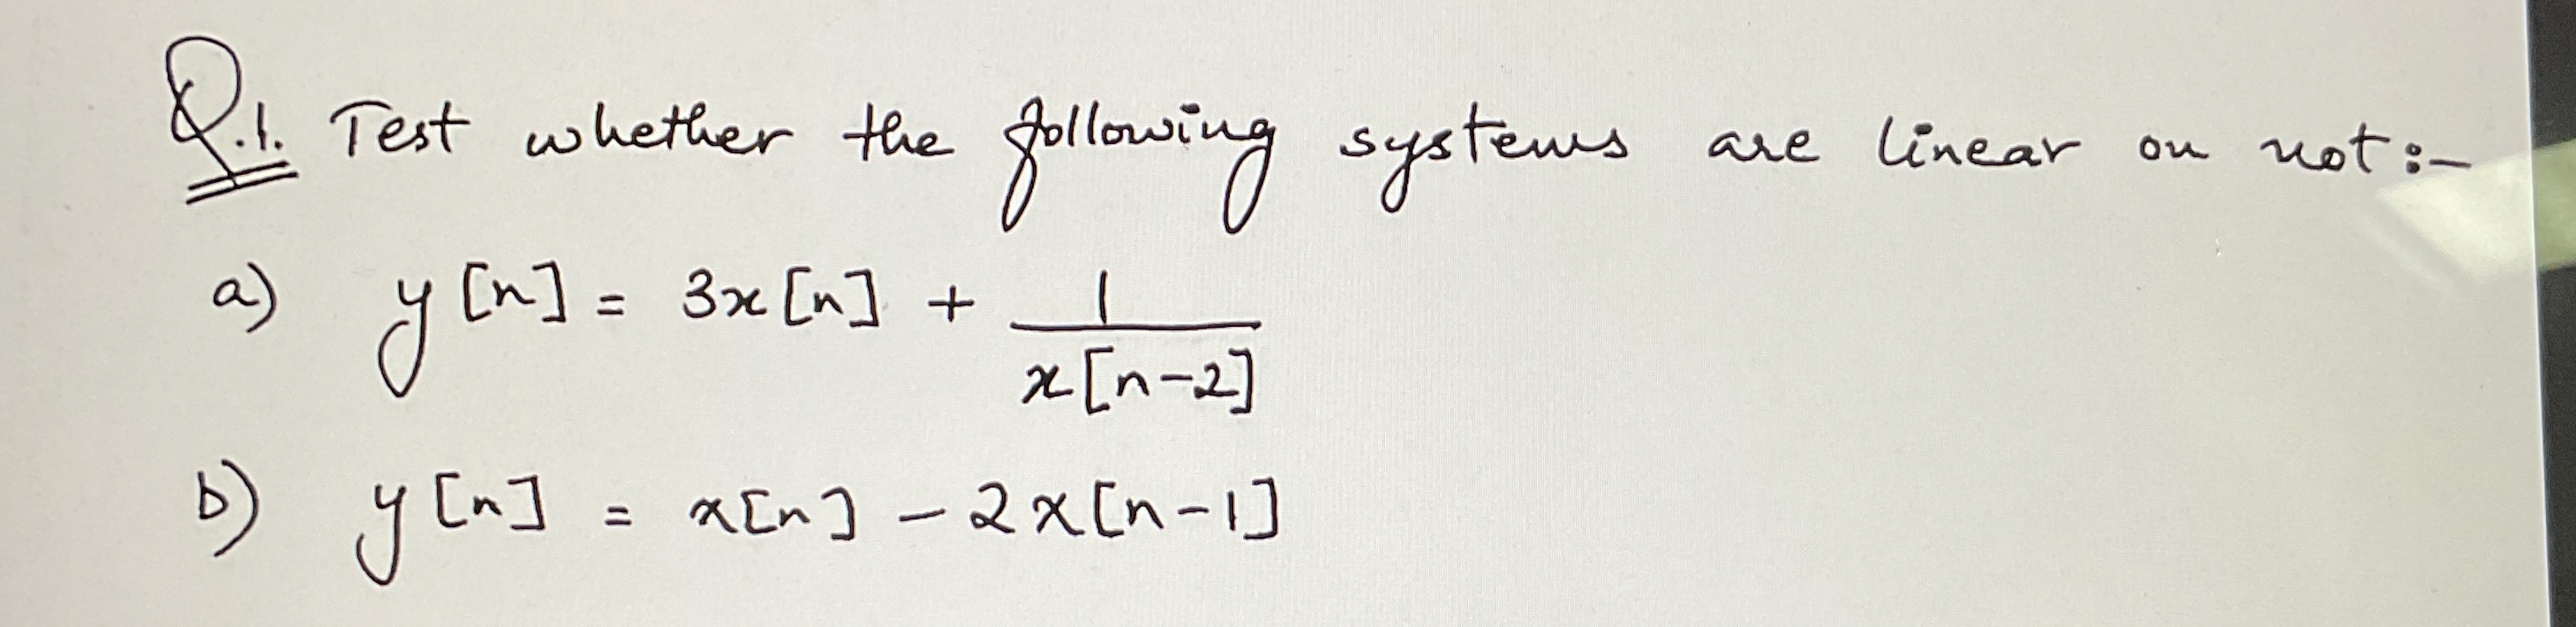 Q.1. Test whether the following systems are linear or not:-
a) y[n] = 3x[n] + 1/x[n-2]
b) y[n] = x[n] - 2x[n-1]